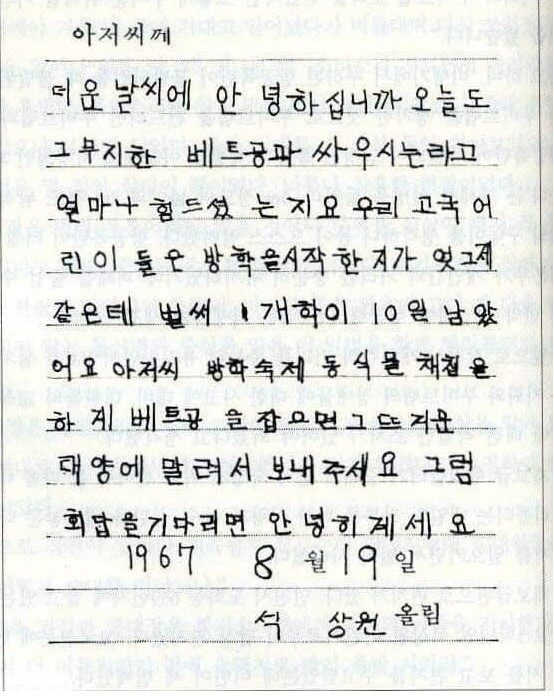 아저씨께
더운 날씨에 안녕하십니까 오늘도
그무지한 베트공과 싸우시는라고
얼마나 힘드셨는지요 우리 고국 어
린이들은 방학을 시작한지가 엊그제
같은데 벌써 개학이 10일 남았
어요 아저씨 방학숙제 동식물 채집을
하게 베트공을 잡으면 그 뜨거운
태양에 말려서 보내주세요 그럼
회답을 기다리면 안녕히 계세요
1967 8월 19일
석 상원 올림